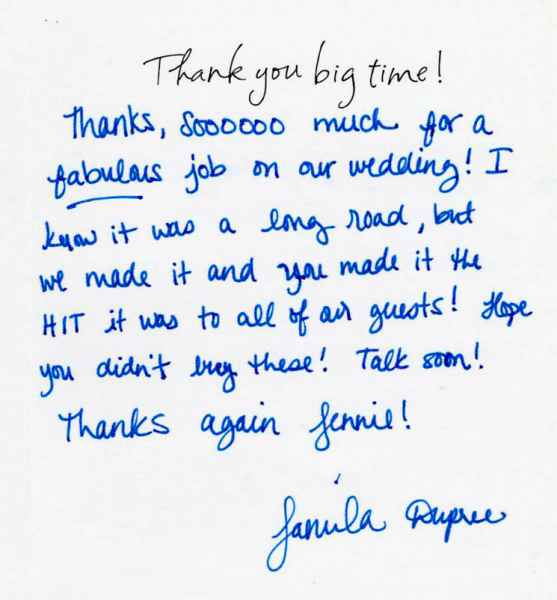 Thank you big time!
Thanks, Soooooo much for a
fabulous job on our wedding! I
know it was a long road, but
we made it and you made it the
HIT it was to all of our guests! Hope
you didn't buy these! Talk soon!
Thanks again Jennie!
Jamila Dupree